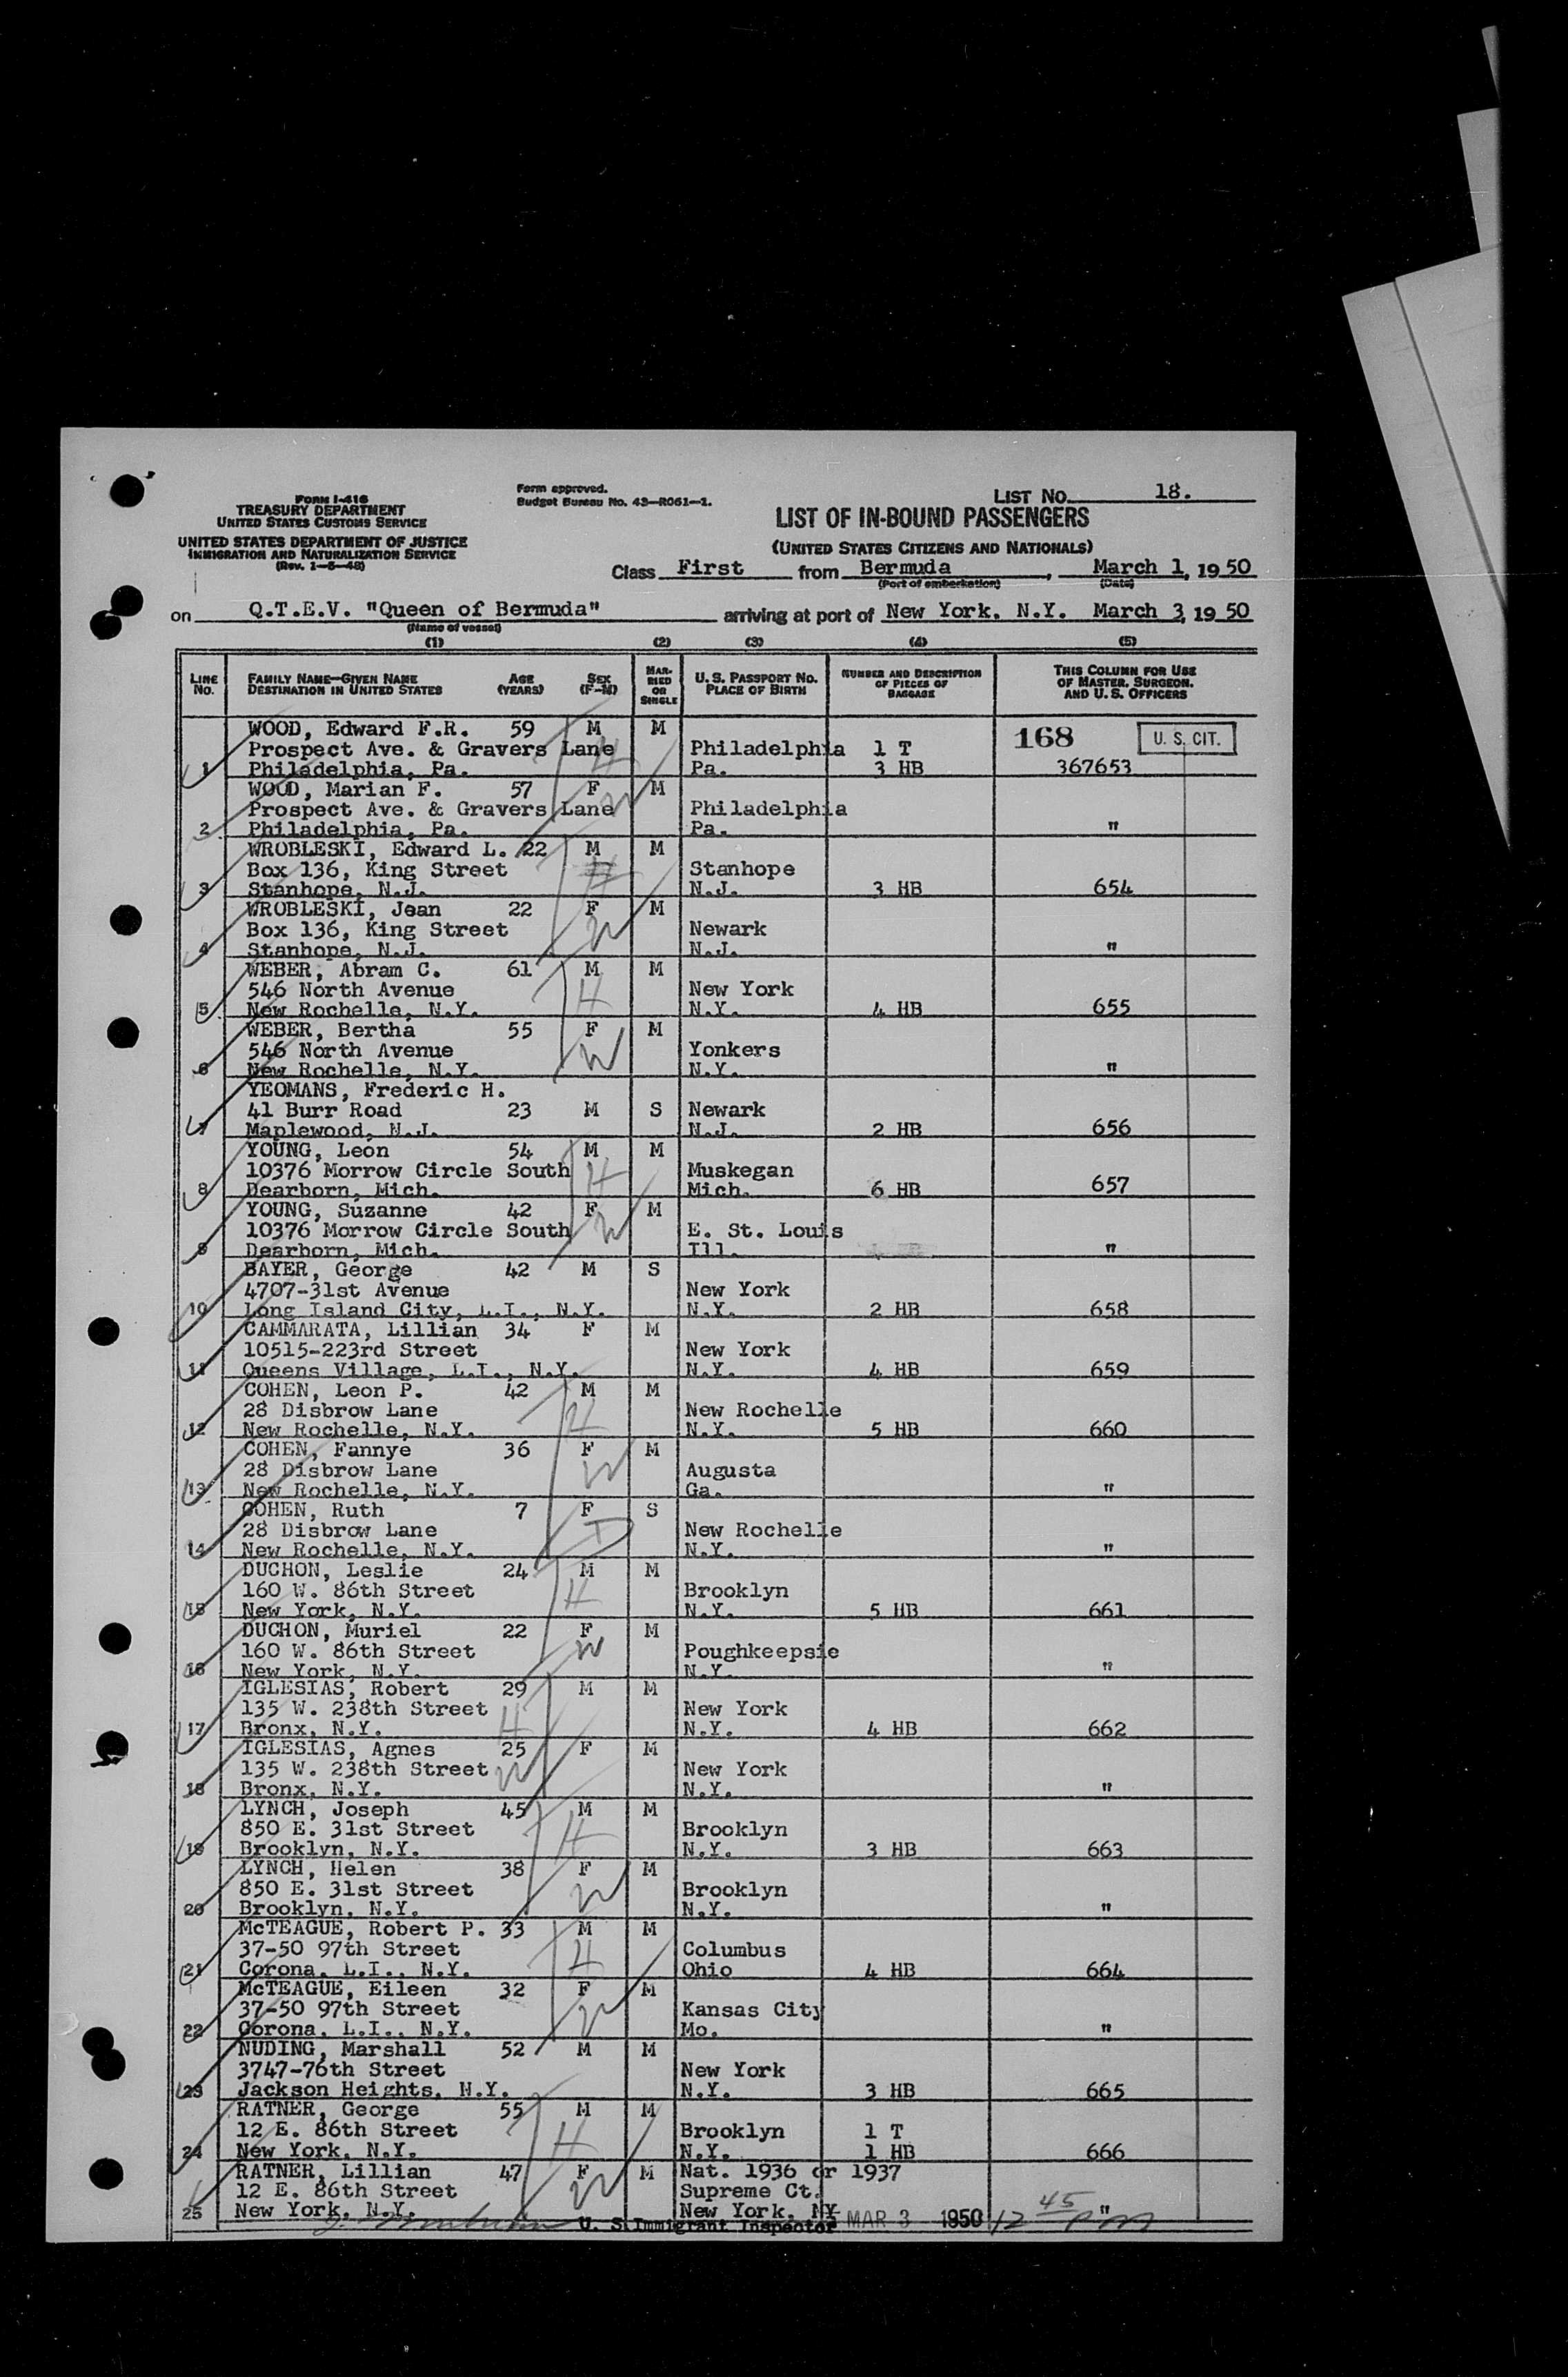 Form I-416
TREASURY DEPARTMENT
UNITED STATES CUSTOMS SERVICE
UNITED STATES DEPARTMENT OF JUSTICE
IMMIGRATION AND NATURALIZATION SERVICE
(Rev. 1-5-48)
Form approved.
Budget Bureau No. 43-R061-1.
LIST No. 18.
LIST OF IN-BOUND PASSENGERS
(UNITED STATES CITIZENS AND NATIONALS)
Class First from Bermuda, March 1, 1950
(Port of embarkation) (Date)
on Q.T.E.V. "Queen of Bermuda" arriving at port of New York, N.Y. March 3, 1950
(Name of vessel)
(1) (2) (3) (4) (5)
LINE No. FAMILY NAME—GIVEN NAME DESTINATION IN UNITED STATES AGE (YEARS) SEX (F-M) MARRIED OR SINGLE U. S. PASSPORT No. PLACE OF BIRTH NUMBER AND DESCRIPTION OF PIECES OF BAGGAGE THIS COLUMN FOR USE OF MASTER, SURGEON, AND U. S. OFFICERS
WOOD, Edward F.R. 59 M M 168 U. S. CIT.
Prospect Ave. & Gravers Lane Philadelphia 1 T
1 Philadelphia, Pa. Pa. 3 HB 367653
WOOD, Marian F. 57 F M
Prospect Ave. & Gravers Lane Philadelphia
2 Philadelphia, Pa. Pa. "
WROBLESKI, Edward L. 22 M M
Box 136, King Street Stanhope
3 Stanhope, N.J. N.J. 3 HB 654
WROBLESKI, Jean 22 F M
Box 136, King Street Newark
4 Stanhope, N.J. N.J. "
WEBER, Abram C. 61 M M
546 North Avenue New York
5 New Rochelle, N.Y. N.Y. 4 HB 655
WEBER, Bertha 55 F M
546 North Avenue Yonkers
6 New Rochelle, N.Y. N.Y. "
YEOMANS, Frederic H.
41 Burr Road 23 M S Newark
7 Maplewood, N.J. N.J. 2 HB 656
YOUNG, Leon 54 M M
10376 Morrow Circle South Muskegan
8 Dearborn, Mich. Mich. 6 HB 657
YOUNG, Suzanne 42 F M
10376 Morrow Circle South E. St. Louis
9 Dearborn, Mich. Ill. "
BAYER, George 42 M S
4707-31st Avenue New York
10 Long Island City, L.I., N.Y. N.Y. 2 HB 658
CAMMARATA, Lillian 34 F M
10515-223rd Street New York
11 Queens Village, L.I., N.Y. N.Y. 4 HB 659
COHEN, Leon P. 42 M M
28 Disbrow Lane New Rochelle
12 New Rochelle, N.Y. N.Y. 5 HB 660
COHEN, Fannye 36 F M
28 Disbrow Lane Augusta
13 New Rochelle, N.Y. Ga. "
COHEN, Ruth 7 F S
28 Disbrow Lane New Rochelle
14 New Rochelle, N.Y. N.Y. "
DUCHON, Leslie 24 M M
160 W. 86th Street Brooklyn
15 New York, N.Y. N.Y. 5 HB 661
DUCHON, Muriel 22 F M
160 W. 86th Street Poughkeepsie
16 New York, N.Y. N.Y. "
IGLESIAS, Robert 29 M M
135 W. 238th Street New York
17 Bronx, N.Y. N.Y. 4 HB 662
IGLESIAS, Agnes 25 F M
135 W. 238th Street New York
18 Bronx, N.Y. N.Y. "
LYNCH, Joseph 45 M M
850 E. 31st Street Brooklyn
19 Brooklyn, N.Y. N.Y. 3 HB 663
LYNCH, Helen 38 F M
850 E. 31st Street Brooklyn
20 Brooklyn, N.Y. N.Y. "
McTEAGUE, Robert P. 33 M M
37-50 97th Street Columbus
21 Corona, L.I., N.Y. Ohio 4 HB 664
McTEAGUE, Eileen 32 F M
37-50 97th Street Kansas City
22 Corona, L.I., N.Y. Mo. "
NUDING, Marshall 52 M M
3747-76th Street New York
23 Jackson Heights, N.Y. N.Y. 3 HB 665
RATNER, George 55 M M
12 E. 86th Street Brooklyn 1 T
24 New York, N.Y. N.Y. 1 HB 666
RATNER, Lillian 47 F M Nat. 1936 or 1937
12 E. 86th Street Supreme Ct.
25 New York, N.Y. New York, NY "
U. S. Immigrant Inspector MAR 3 1950 12 45 PM